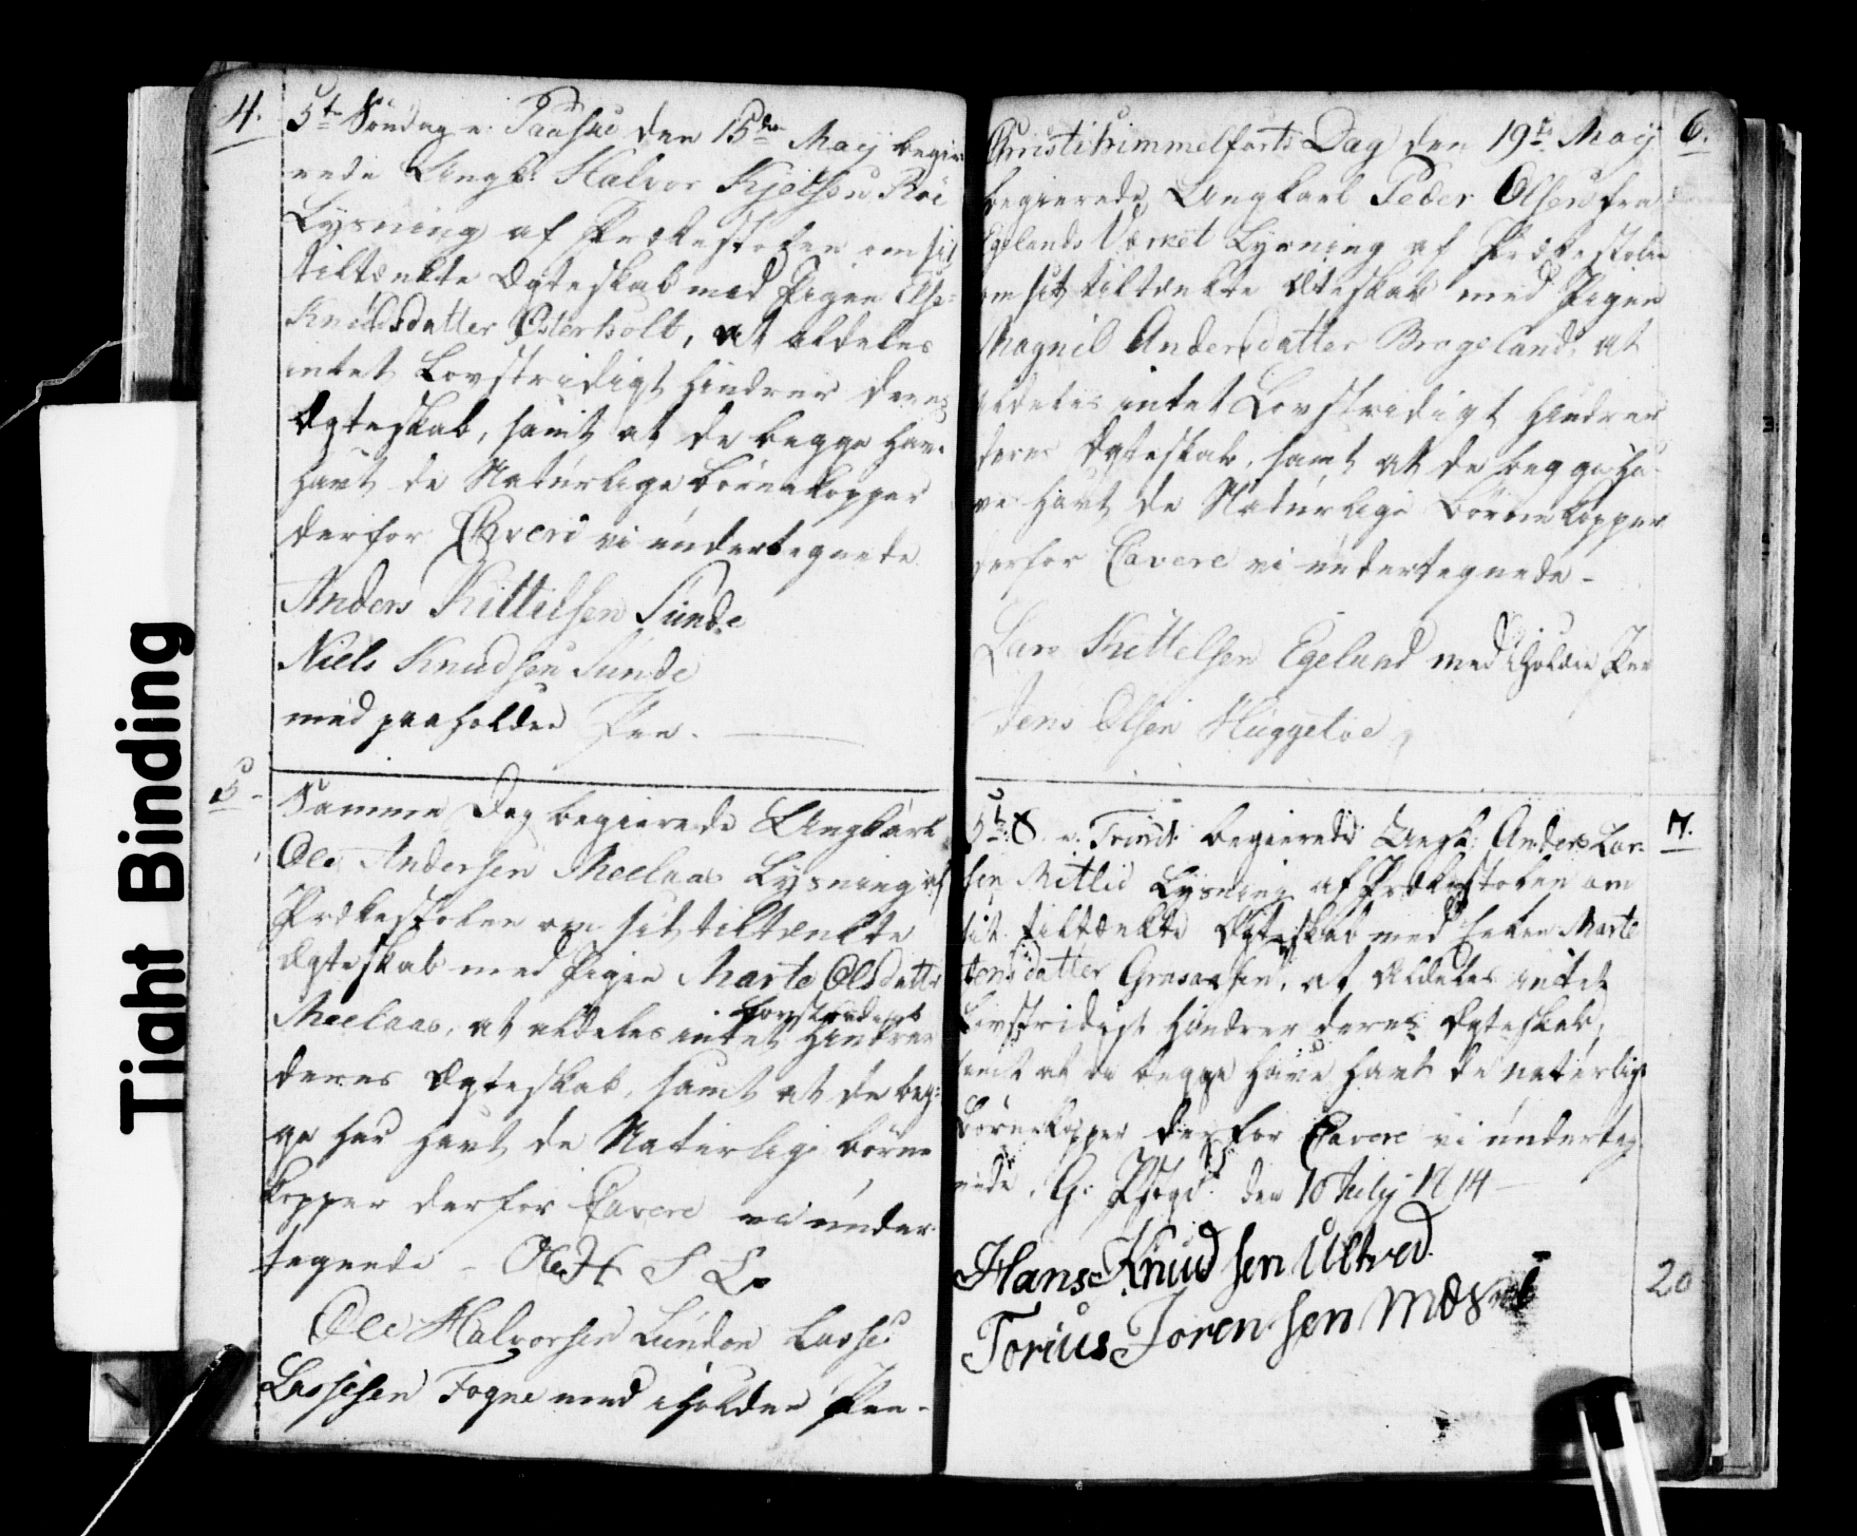 4.
5te Søndag e: Paaske den 15de Maij begie-
rede Ungk: Halvor Kjetilsen Røe
Lysning af Prækestolen om sit
tiltænkte Ægteskab med Pigen Else
Knudsdatter Østerholt, at aldeles
intet Lovstridigt hindrer deres
Ægteskab, samt at de begge have
havt de Naturlige Børnekopper
derfor Cavere vi undertegnede
Anders Kittilsen Sunde
Niels Knudsen Sunde
med paaholden Pen.
5
Samme Dag begierede Ungkarl
Ole Andersen Meelaas Lysning af
Prækestolen om sit tiltænkte
Ægteskab med Pigen Marte Olsdatter
Meelaas, at aldeles intet Lovstridigt hindrer
deres Ægteskab, samt at de beg-
ge har havt de Naturlige Børne
kopper derfor Cavere vi under
tegnede - S L
Ole Halvorsen Lunden Lasse
Lassesen Fogne med iholden Pen -
6.
Christi himmelfarts Dag den 19de Maij
begierede Ungkarl Peder Olsen fra
Egelands Værket Lysning af Prækestolen
om sit tiltænkte Ægteskab med Pigen
Magnil Andersdatter Brageland, at
aldeles intet Lovstridigt hindrer
deres Ægteskab, samt at de begge ha-
ve havt de Naturlige Børnekopper
derfor Cavere vi undertegnede -
Lars Kittelsen Egeland med iholden Pen
Jens Olsen Huggeloe
7.
5te S. e. Trinit: begierede Ungk: Anders Lar-
sen Mitlid Lysning af Prækestolen om
sit tiltænkte Ægteskab med Marte
Jensdatter Gresaasen, at aldeles intet
Lovstridigt hindrer deres Ægteskab,
samt at de begge have havt de naturlige
Børnekopper derfor Cavere vi underteg-
nede. G: Pstgd: den 10 Julij 1814
Hans Knudsen Ultved
Torius Jorensen
20
Tight Binding